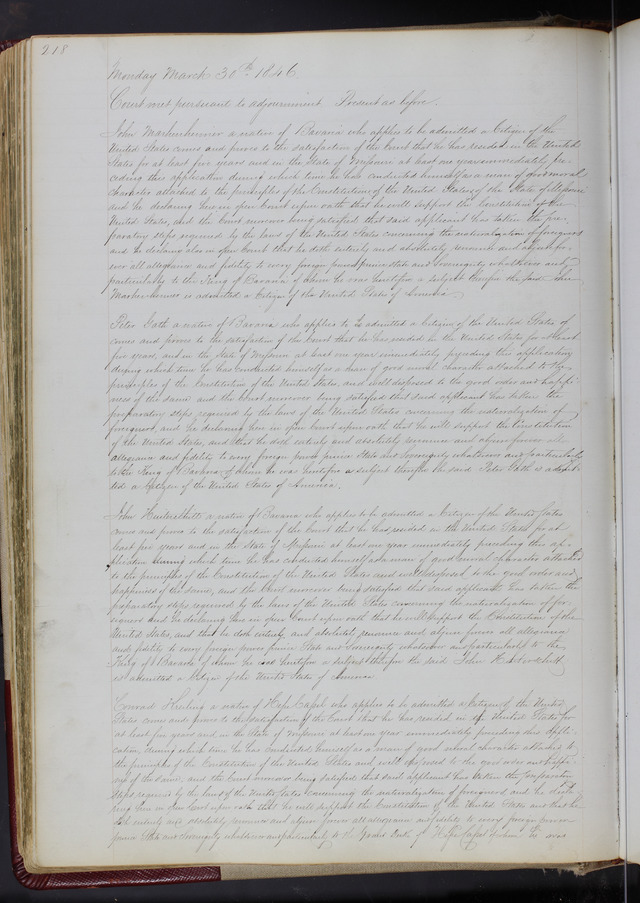 218
Monday March 30th 1846
Court met pursuant to adjournment Present as before.
John Markenheimer a native of Bavaria who applies to be admitted a Citizen of the
United States comes and proves to the satisfaction of the Court that he has resided in the United
States for at least five years and in the State of Missouri at least one year immediately pre-
ceding this application during which time he has conducted himself as a man of good moral
character attached to the principles of the Constitution of the United States of the State of Missouri
and he declaring here in open Court upon oath that he will support the Constitution of the
United States, and the Court moreover being satisfied that said applicant has taken the pre-
paratory steps required by the laws of the United States concerning the naturalization of foreigners
and he declaring also in open Court that he doth entirely and absolutely renounce and abjure for-
ever all allegiance and fidelity to every foreign power prince state and Sovereignty whatsoever and
particularly to the King of Bavaria of whom he was heretofore a subject therefore the said John
Markenheimer is admitted a Citizen of the United States of America.
Peter Gath a native of Bavaria who applies to be admitted a Citizen of the United States of
comes and proves to the satisfaction of the Court that he has resided in the United States for at least
five years, and in the State of Missouri at least one year immediately preceding this application
during which time he has conducted himself as a man of good moral character attached to the
principles of the Constitution of the United States, and well disposed to the good order and happi-
ness of the same and the Court moreover being satisfied that said applicant has taken the
preparatory steps required by the laws of the United States concerning the naturalization of
foreigners, and he declaring here in open Court upon oath that he will support the Constitution
of the United States, and that he doth entirely and absolutely renounce and abjure forever all
allegiance and fidelity to every foreign power prince State and Sovereignty whatsoever and particularly
to the King of Bavaria of whom he was heretofore a subject therefore the said Peter Gath is admit-
ted a Citizen of the United States of America.
John a native of Bavaria who applies to be admitted a Citizen of the United States
comes and proves to the satisfaction of the Court that he has resided in the United States for at
least five years and in the State of Missouri at least one year immediately preceding this ap-
plication during which time he has conducted himself as a man of good moral character attached
to the principles of the Constitution of the United States and well disposed to the good order and
happiness of the same, and the Court moreover being satisfied that said applicant has taken the
preparatory steps required by the laws of the United States concerning the naturalization of for-
eigners and he declaring here in open Court upon oath that he will support the Constitution of the
United States, and that he doth entirely and absolutely renounce and abjure forever all allegiance
and fidelity to every foreign power prince State and Sovereignty whatsoever and particularly to the
King of Bavaria of whom he was heretofore a subject therefore the said John
is admitted a Citizen of the United States of America
Conrad a native of Hesse Cassel who applies to be admitted a Citizen of the United
States comes and proves to the satisfaction of the Court that he has resided in the United States for
at least five years and in the State of Missouri at least one year immediately preceding this appli-
cation, during which time he has conducted himself as a man of good moral character attached to
the principles of the Constitution of the United States and well disposed to the good order and happi-
ness of the same, and the Court moreover being satisfied that said applicant has taken the preparatory
steps required by the laws of the United States concerning the naturalization of foreigners and he decla-
ring here in open Court upon oath that he will support the Constitution of the United States and that he
doth entirely and absolutely renounce and abjure forever all allegiance and fidelity to every foreign power
prince State and Sovereignty whatsoever and particularly to the Grand Duke of Hesse Cassel of whom he was